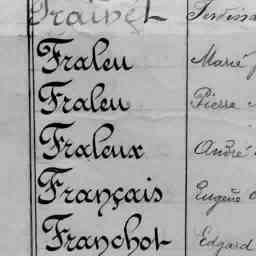 Fraleu Marie
Fraleu Pierre
Fraleux André
Français Eugène
Franchot Edgard